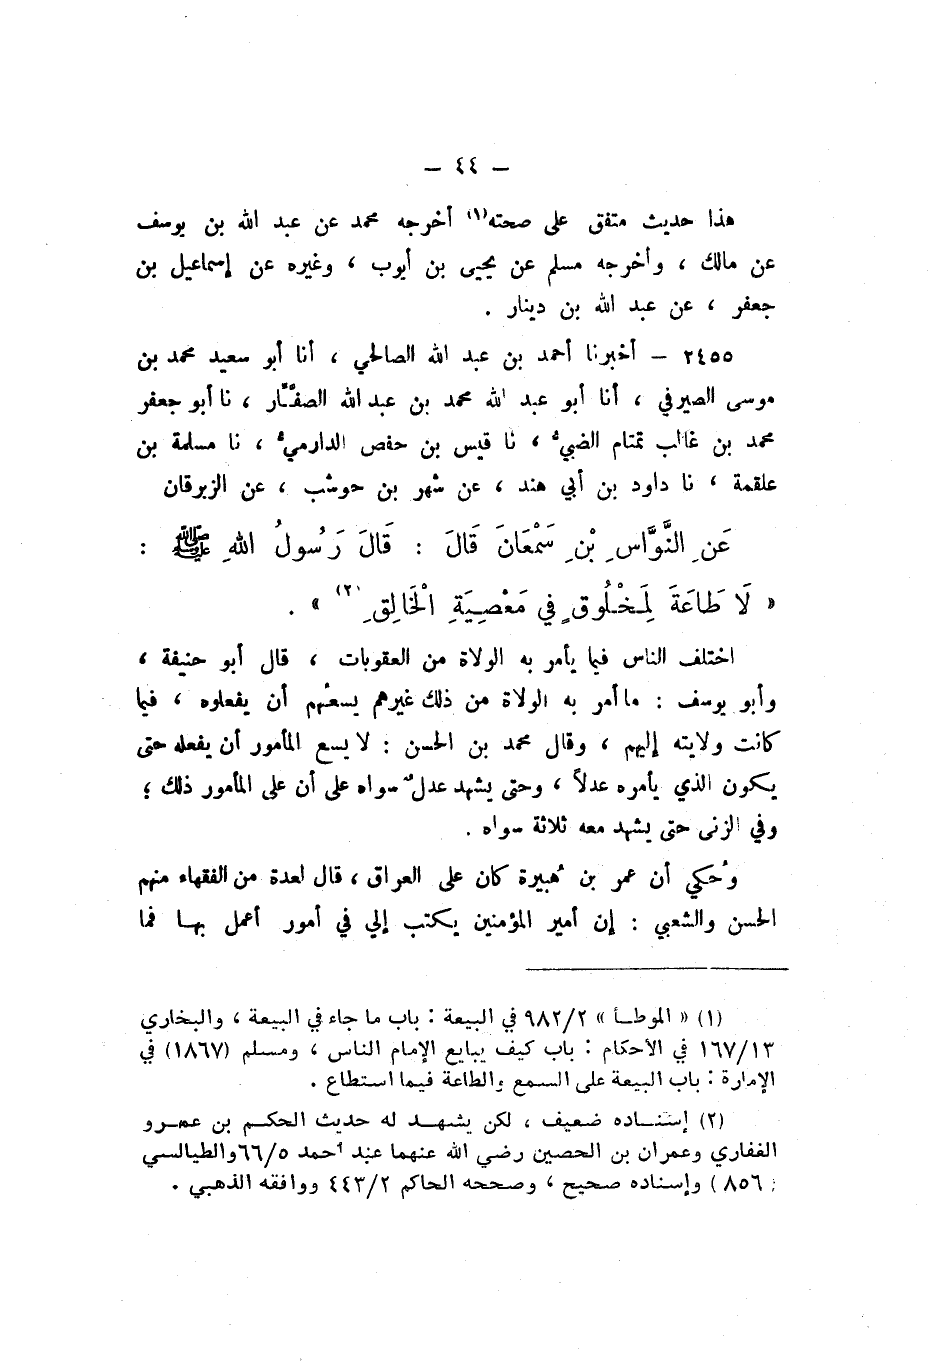 — ٤٤ —
هذا حديث متفق على صحته(١) أخرجه محمد عن عبد الله بن يوسف
عن مالك ، وأخرجه مسلم عن يحيى بن أيوب ، وغيره عن إسماعيل بن
جعفر ، عن عبد الله بن دينار .
٢٤٥٥ — أخبرنا أحمد بن عبد الله الصالحي ، أنا أبو سعيد محمد بن
موسى الصيرفي ، أنا أبو عبد الله محمد بن عبد الله الصفَّار ، نا أبو جعفر
محمد بن غالب تمتام الضبيُّ ، نا قيس بن حفص الدارميُّ ، نا مسلمة بن
علقمة ، نا داود بن أبي هند ، عن شهر بن حوشب ، عن الزبرقان
عَنِ النَّوَّاسِ بْنِ سَمْعَانَ قَالَ : قَالَ رَسُولُ اللهِ ﷺ :
« لَا طَاعَةَ لِمَخْلُوقٍ فِي مَعْصِيَةِ الْخَالِقِ (٢) » .
اختلف الناس فيما يأمر به الولاة من العقوبات ، قال أبو حنيفة ،
وأبو يوسف : ما أمر به الولاة من ذلك غيرهم يسعُهم أن يفعلوه ، فيما
كانت ولايته إليهم ، وقال محمد بن الحسن : لا يسع المأمور أن يفعله حتى
يكون الذي يأمره عدلاً ، وحتى يشهد عدلٌ سواه على أن على المأمور ذلك ؛
وفي الزنى حتى يشهد معه ثلاثة سواه .
وحُكي أن عمر بن هُبيرة كان على العراق ، قال لعدة من الفقهاء منهم
الحسن والشعبي : إن أمير المؤمنين يكتب إلي في أمور أعمل بها فما
(١) « الموطـأ » ٩٨٢/٢ في البيعة : باب ما جاء في البيعة ، والبخاري
١٦٧/١٣ في الأحكام : باب كيف يبايع الإمام الناس ، ومسلم (١٨٦٧) في
الإمارة : باب البيعة على السمع والطاعة فيما استطاع .
(٢) إسنـاده ضعيف ، لكن يشهـد له حديث الحكم بن عمـرو
الغفاري وعمران بن الحصين رضي الله عنهما عند أحمد ٦٦/٥ والطيالسي
( ٨٥٦ ) وإسناده صحيح ، وصححه الحاكم ٤٤٣/٢ ووافقه الذهبي .